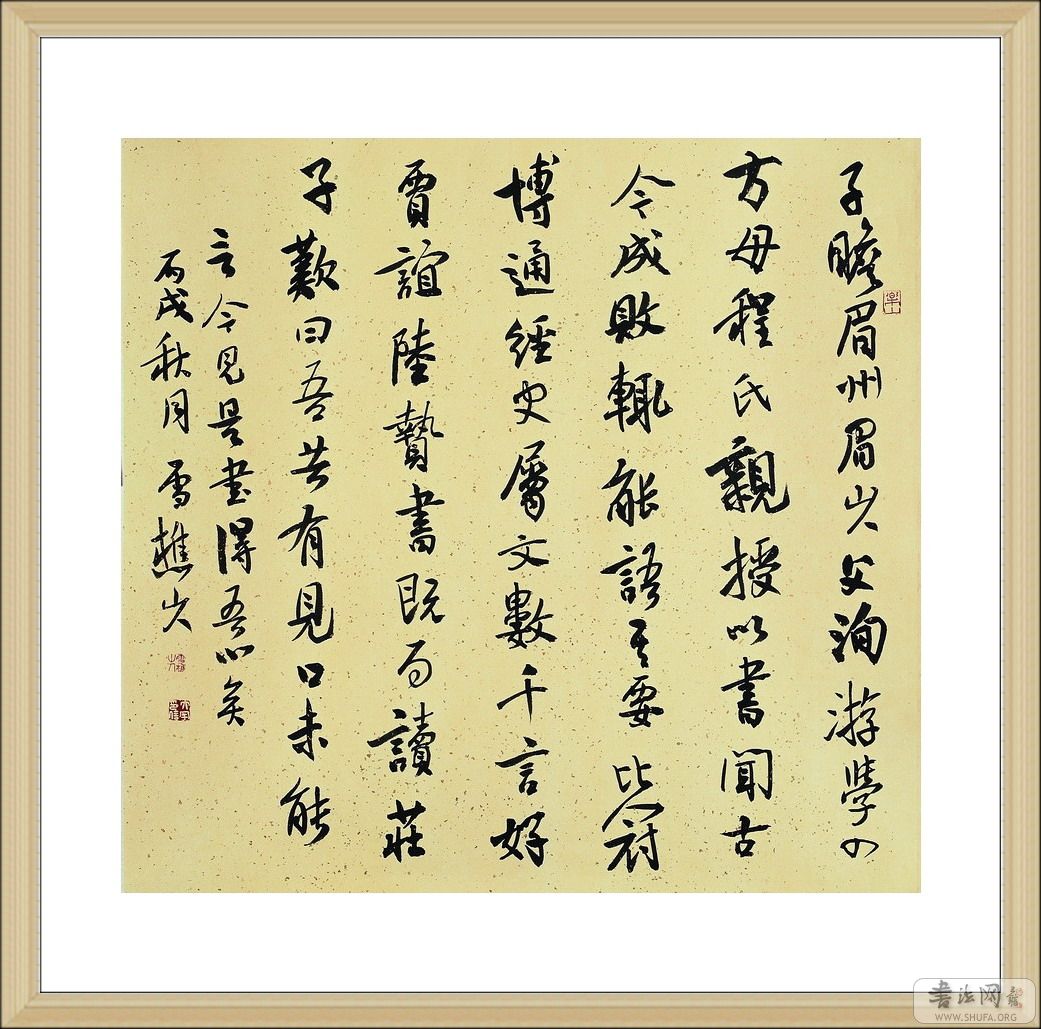 子瞻眉州眉山人父洵游學四
方母程氏親授以書聞古
今成敗輒能語其要比冠
博通經史屬文數千言好
賈誼陸贄書既而讀莊
子歎曰吾昔有見口未能
言今見是書得吾心矣
丙戌秋月雪樵山人
書法网
WWW.SHUFA.ORG